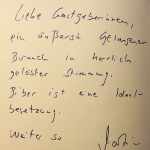 Liebe Gastgeberinnen,
ein äußerst gelungener
Brunch in herrlich
gelöster Stimmung.
Biber ist eine Ideal-
besetzung.
Weiter so